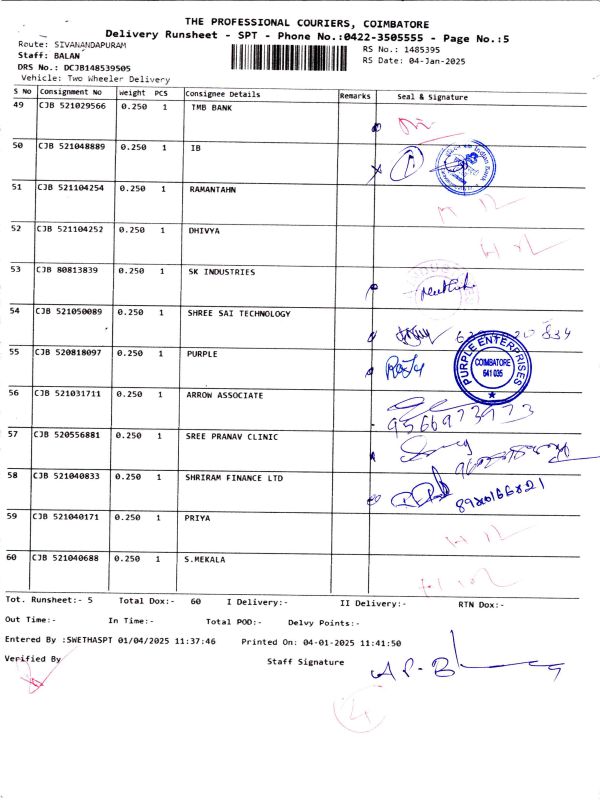 THE PROFESSIONAL COURIERS, COIMBATORE
Delivery Runsheet - SPT - Phone No.:0422-3505555 - Page No.:5
Route: SIVANANDAPURAM
RS No.: 1485395
Staff: BALAN
RS Date: 04-Jan-2025
DRS No.: DCJB148539505
Vehicle: Two Wheeler Delivery
S No Consignment No Weight PCS Consignee Details Remarks Seal & Signature
49 CJB 521029566 0.250 1 TMB BANK
50 CJB 521048889 0.250 1 IB
Indian Bank
51 CJB 521104254 0.250 1 RAMANTAHN
52 CJB 521104252 0.250 1 DHIVYA
53 CJB 80813839 0.250 1 SK INDUSTRIES
54 CJB 521050089 0.250 1 SHREE SAI TECHNOLOGY
55 CJB 520818097 0.250 1 PURPLE
PURPLE ENTERPRISES
COIMBATORE
641 035
56 CJB 521031711 0.250 1 ARROW ASSOCIATE
9566973973
57 CJB 520556881 0.250 1 SREE PRANAV CLINIC
58 CJB 521040833 0.250 1 SHRIRAM FINANCE LTD
59 CJB 521040171 0.250 1 PRIYA
60 CJB 521040688 0.250 1 S.MEKALA
Tot. Runsheet:- 5 Total Dox:- 60 I Delivery:- II Delivery:- RTN Dox:-
Out Time:- In Time:- Total POD:- Delvy Points:-
Entered By :SWETHASPT 01/04/2025 11:37:46 Printed On: 04-01-2025 11:41:50
Verified By Staff Signature